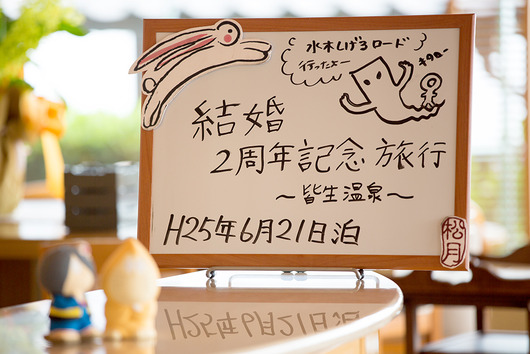 水木しげるロード
行ったよー
キタロー
結婚
2周年記念 旅行
～皆生温泉～
H25年6月21日泊
松月